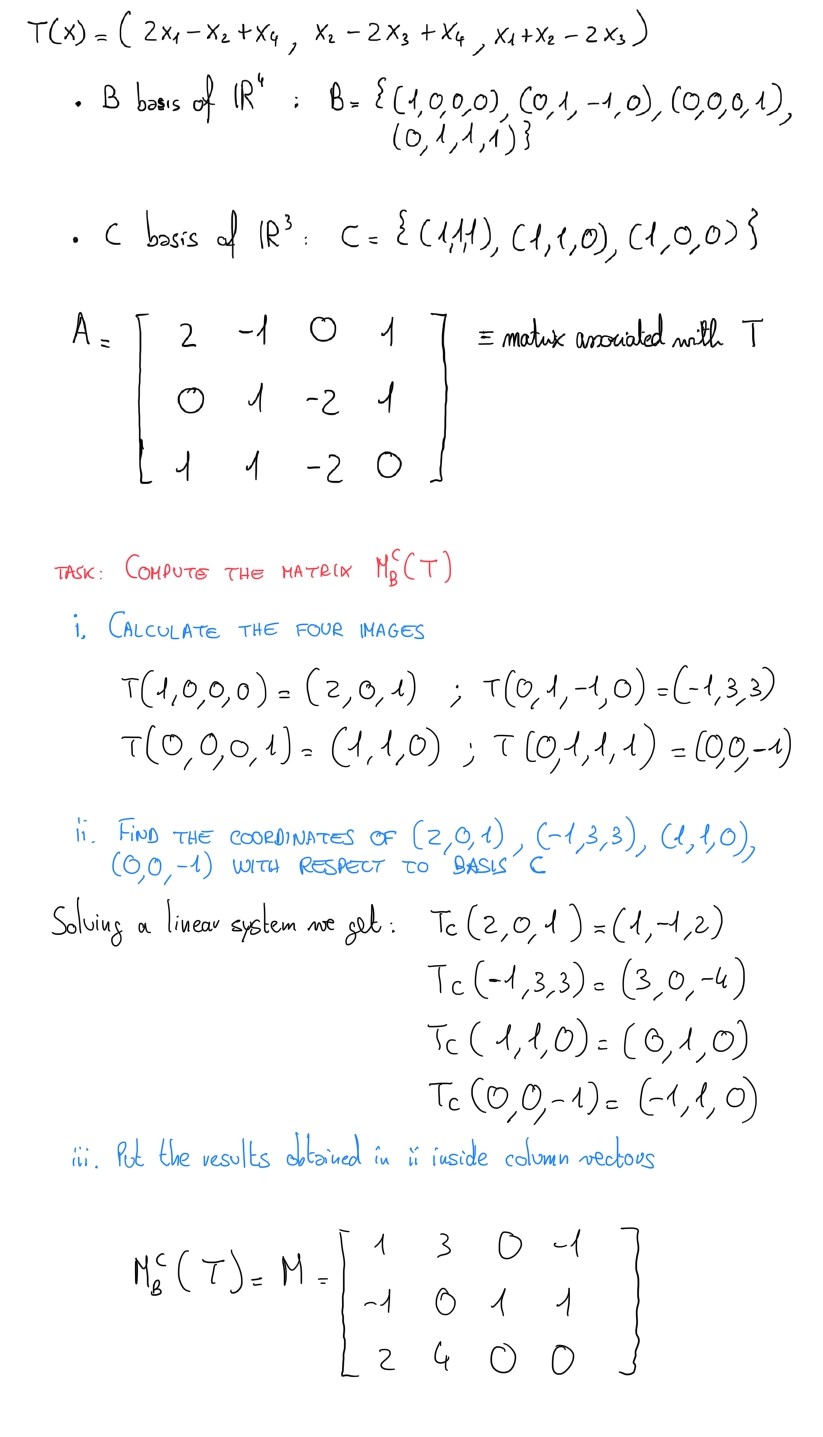 T(x) = ( 2x₁ - x₂ + x₄ , x₂ - 2x₃ + x₄ , x₁ + x₂ - 2x₃ )
• B basis of ℝ⁴ : B = {(1,0,0,0), (0,1,-1,0), (0,0,0,1),
(0,1,1,1)}
• C basis of ℝ³ : C = {(1,1,1), (1,1,0), (1,0,0)}
A = [ 2 -1 0 1 ] ≡ matrix associated with T
[ 0 1 -2 1 ]
[ 1 1 -2 0 ]
TASK: COMPUTE THE MATRIX M_B^C(T)
i, CALCULATE THE FOUR IMAGES
T(1,0,0,0) = (2,0,1) ; T(0,1,-1,0) = (-1,3,3)
T(0,0,0,1) = (1,1,0) ; T(0,1,1,1) = (0,0,-1)
ii. FIND THE COORDINATES OF (2,0,1), (-1,3,3), (1,1,0),
(0,0,-1) WITH RESPECT TO BASIS C
Solving a linear system we get: T_C(2,0,1) = (1,-1,2)
T_C(-1,3,3) = (3,0,-4)
T_C(1,1,0) = (0,1,0)
T_C(0,0,-1) = (-1,1,0)
iii. Put the results obtained in ii inside column vectors
M_B^C(T) = M = [ 1 3 0 -1 ]
[ -1 0 1 1 ]
[ 2 4 0 0 ]